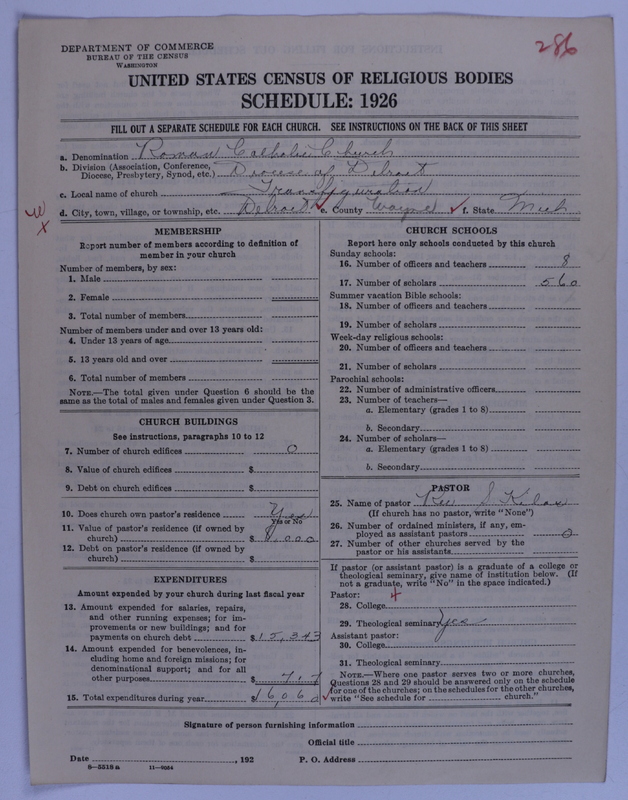 DEPARTMENT OF COMMERCE
BUREAU OF THE CENSUS
WASHINGTON
286
UNITED STATES CENSUS OF RELIGIOUS BODIES
SCHEDULE: 1926
FILL OUT A SEPARATE SCHEDULE FOR EACH CHURCH. SEE INSTRUCTIONS ON THE BACK OF THIS SHEET
a. Denomination Roman Catholic Church
b. Division (Association, Conference, Diocese, Presbytery, Synod, etc.) Diocese of Detroit
c. Local name of church Transfiguration
d. City, town, village, or township, etc. Detroit e. County Wayne f. State Mich
MEMBERSHIP
Report number of members according to definition of
member in your church
Number of members, by sex:
1. Male
2. Female
3. Total number of members
Number of members under and over 13 years old:
4. Under 13 years of age
5. 13 years old and over
6. Total number of members
NOTE.—The total given under Question 6 should be the
same as the total of males and females given under Question 3.
CHURCH BUILDINGS
See instructions, paragraphs 10 to 12
7. Number of church edifices 0
8. Value of church edifices $
9. Debt on church edifices $
10. Does church own pastor's residence Yes
Yes or No
11. Value of pastor's residence (if owned by
church) $ 000
12. Debt on pastor's residence (if owned by
church) $
EXPENDITURES
Amount expended by your church during last fiscal year
13. Amount expended for salaries, repairs,
and other running expenses; for im-
provements or new buildings; and for
payments on church debt $ 15,343
14. Amount expended for benevolences, in-
cluding home and foreign missions; for
denominational support; and for all
other purposes $ 717
15. Total expenditures during year $ 16,060
CHURCH SCHOOLS
Report here only schools conducted by this church
Sunday schools:
16. Number of officers and teachers 8
17. Number of scholars 560
Summer vacation Bible schools:
18. Number of officers and teachers
19. Number of scholars
Week-day religious schools:
20. Number of officers and teachers
21. Number of scholars
Parochial schools:
22. Number of administrative officers
23. Number of teachers—
a. Elementary (grades 1 to 8)
b. Secondary
24. Number of scholars—
a. Elementary (grades 1 to 8)
b. Secondary
PASTOR
25. Name of pastor Rev S
(If church has no pastor, write "None")
26. Number of ordained ministers, if any, em-
ployed as assistant pastors 0
27. Number of other churches served by the
pastor or his assistants
If pastor (or assistant pastor) is a graduate of a college or
theological seminary, give name of institution below. (If
not a graduate, write "No" in the space indicated.)
Pastor:
28. College
29. Theological seminary Yes
Assistant pastor:
30. College
31. Theological seminary
NOTE.—Where one pastor serves two or more churches,
Questions 28 and 29 should be answered only on the schedule
for one of the churches; on the schedules for the other churches,
write "See schedule for church."
Signature of person furnishing information
Official title
Date , 192 P. O. Address
8—5518a 11—9054